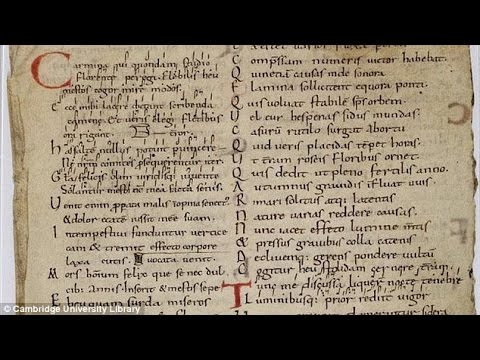 Carmina qui quondam studio
Florente peregi. Flebilis heu
mestos cogor inire modos.
Ecce mihi lacere dictant scribenda
camene. Et veris elegi fletibus
ora rigant. Terror.
has saltē nullus potuit puincere
Ne nrm comites psequerentur iter
Gloria felicis olim
Solantur mesti nc mea fata senis
Venit enim malis inopina senect
& dolor etatē iussit inesse suam
Intempestiui funduntur vertice
cani & tremit effecto corpore
laxa cutis. Vocata venit.
Mors hominum felix que se nec dul
cib; Annis. Inserit & mestis sepe
Eheu quam surda miseros
compssam numeris victor habebat.
causas unde sonora
Flamina sollicitent equora ponti
Quis voluat stabilē sps orbem
Vel cur hesperias sidus in undas
Casurū rutilo surgat abortu
Quid veris placidas tepet horas
Vt terram roseis Floribus ornet
Quis dedit ut pleno fertilis anno
Autumnus gravidis influat uvis
Rimari solitus atq; latentis
Nature varias reddere causas.
Nunc iacet effecto lumine mtis
& pressus gravibus colla catenis
Decliuemq; gerens pondere vultum
Cogitur heu stolidam cernere terrā.
Tunc me discussa liquer nocte tenebre
Luminibusq; prior rediit vigor
© Cambridge University Library